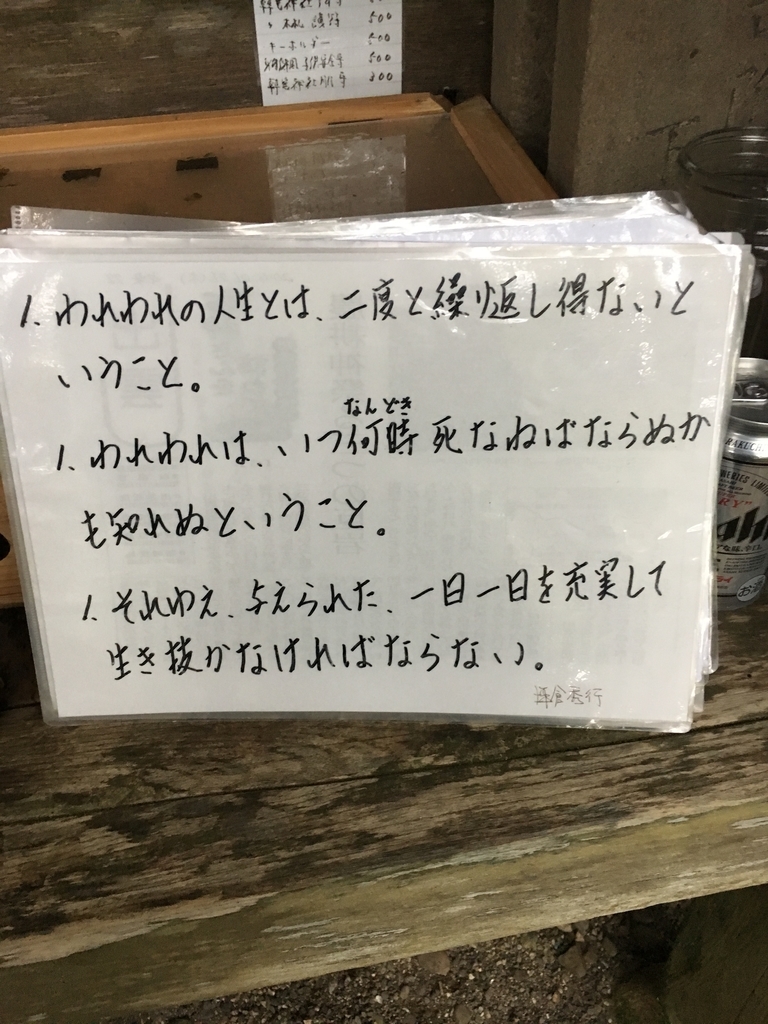 お札 500
キーホルダー 500
500
300
1. われわれの人生とは、二度と繰り返し得ないと
いうこと。
なんどき
1. われわれは、いつ何時死なねばならぬか
も知れぬということ。
1. それゆえ、与えられた、一日一日を充実して
生き抜かなければならない。
RY"
お酒